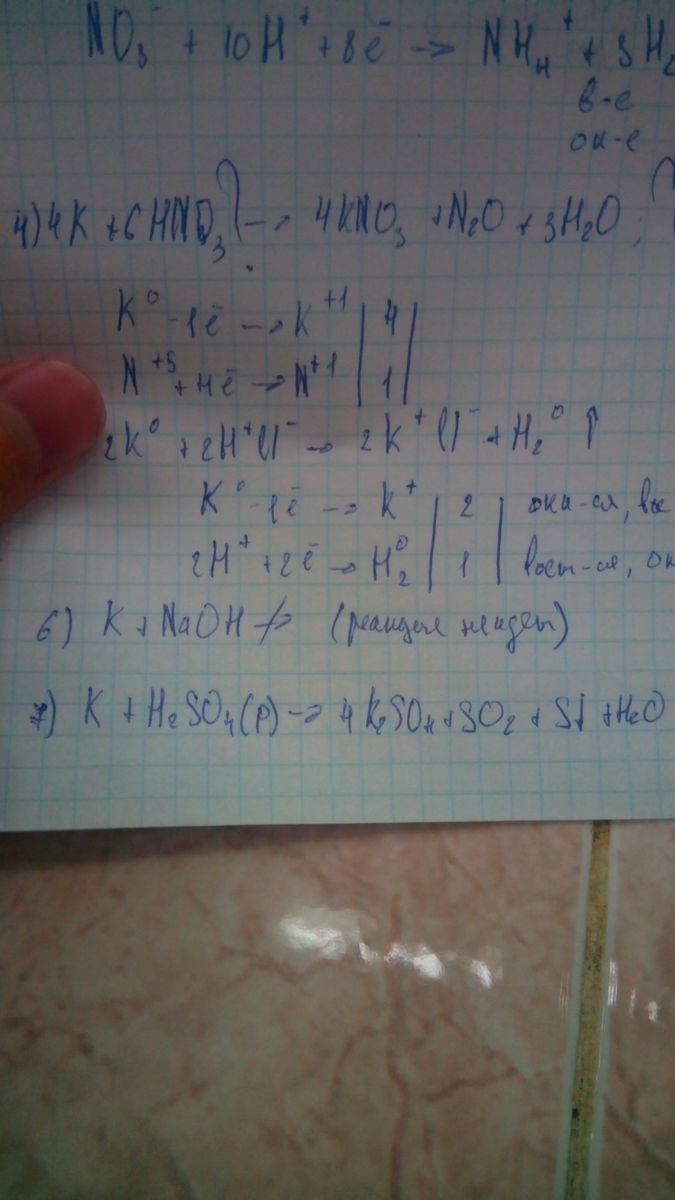 NO3⁻ + 10H⁺ + 8ē → NH4⁺ + 3H2
в-е
ок-е
4) 4K + 6HNO3 → 4KNO3 + N2O + 3H2O ;
K⁰ - 1ē → K⁺¹ | 4 |
N⁺⁵ + 4ē → N⁺¹ | 1 |
2K⁰ + 2H⁺Cl⁻ → 2K⁺Cl⁻ + H2⁰ ↑
K⁰ - 1ē → K⁺ | 2 | оки-ся, вс
2H⁺ + 2ē → H2⁰ | 1 | восст-ся, ок
6) K + NaOH ↛ (реакция не идёт)
7) K + H2SO4(р) → 4K2SO4 + SO2 + S↓ + H2O